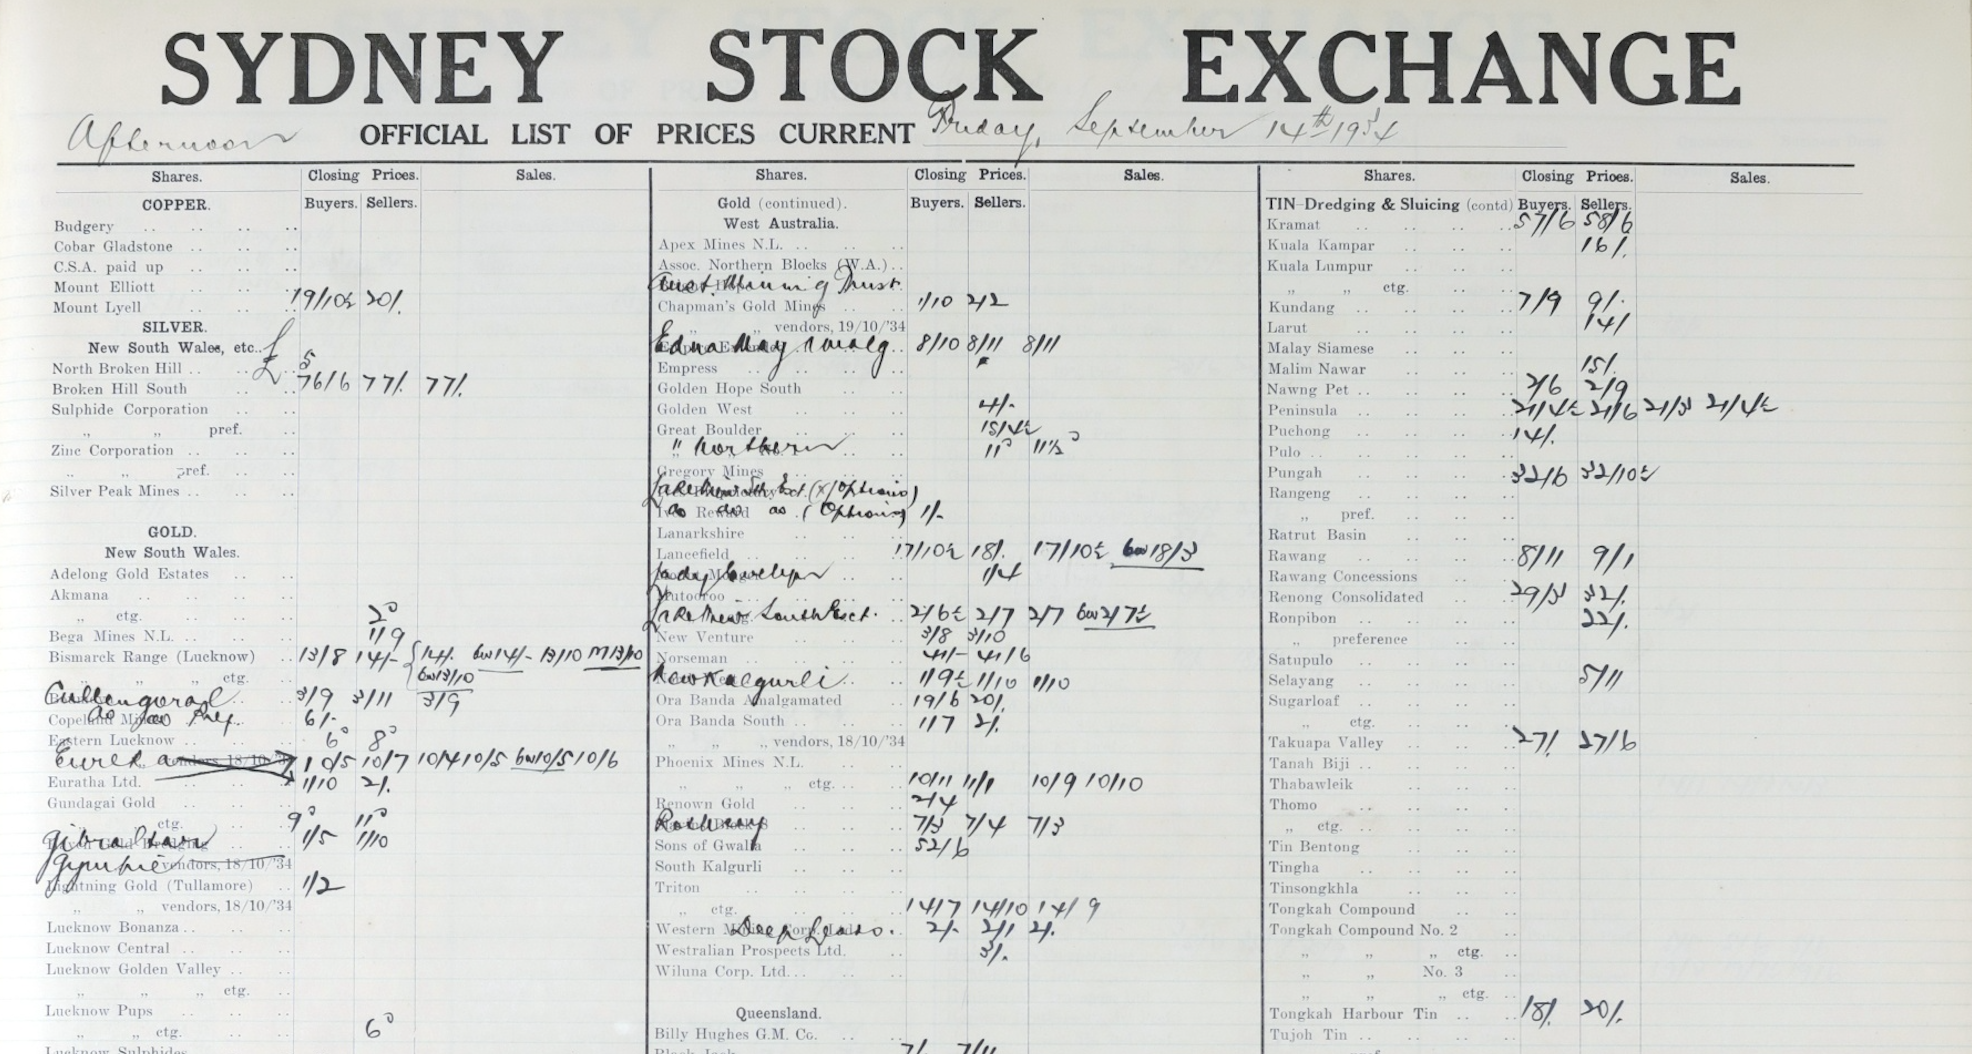 SYDNEY STOCK EXCHANGE
Afternoon OFFICIAL LIST OF PRICES CURRENT Friday, September 14th 1934
Shares. Closing Prices. Sales.
COPPER. Buyers. Sellers.
Budgery
Cobar Gladstone
C.S.A. paid up
Mount Elliott
Mount Lyell 19/10½ 20/.
SILVER.
New South Wales, etc. £
North Broken Hill £ 5
Broken Hill South 76/6 77/. 77/.
Sulphide Corporation
„ „ pref.
Zinc Corporation
„ „ pref.
Silver Peak Mines
GOLD.
New South Wales.
Adelong Gold Estates
Akmana
„ ctg. 2ᴰ
Bega Mines N.L. 1/9
Bismarck Range (Lucknow) 13/8 14/- 14/. bw 14/- 13/10 M13/10
„ „ ctg. bw 13/10
Cullengoral 3/9 3/11 3/9
Copeland do do Pref. 6/-
Eastern Lucknow 6ᴰ 8ᴰ
Eureka vendors, 18/10/'34 10/5 10/7 10/4 10/5 bw10/5 10/6
Euratha Ltd. 1/10 2/.
Gundagai Gold
ctg. 9ᴰ 11ᴰ
Gibraltar 1/5 1/10
Gympie vendors, 18/10/'34
Lightning Gold (Tullamore) 1/2
„ „ vendors, 18/10/'34
Lucknow Bonanza
Lucknow Central
Lucknow Golden Valley
„ „ „ ctg.
Lucknow Pups
„ „ ctg. 6ᴰ
Lucknow Sulphides
Shares. Closing Prices. Sales.
Gold (continued). Buyers. Sellers.
West Australia.
Apex Mines N.L.
Assoc. Northern Blocks (W.A.)
Aust. Mining Trust
Chapman's Gold Mines 1/10 2/2
„ „ vendors, 19/10/'34
Edna May Amalg 8/10 8/11 8/11
Empress
Golden Hope South
Golden West 4/-
Great Boulder 15/4½
" Northern 11ᴰ 11½ᴰ
Gregory Mines
Lake View Sth Ext. (x/Options)
do do do (Options) 1/-
Lanarkshire
Lancefield 17/10½ 18/. 17/10½ bw 18/3
Lady Evelyn 1/4
Lake View South Ext. 2/6½ 2/7 2/7 bw 2/7½
New Venture 3/8 3/10
Norseman 41/- 41/6
New Kalgurli 1/9½ 1/10 1/10
Ora Banda Amalgamated 19/6 20/.
Ora Banda South 1/7 2/.
„ „ „ vendors, 18/10/'34
Phoenix Mines N.L.
„ „ „ ctg. 10/11 11/1 10/9 10/10
Renown Gold 2/4
Rothsay 7/3 7/4 7/3
Sons of Gwalia 52/6
South Kalgurli
Triton
„ ctg. 14/7 14/10 14/9
Western Deep Leads. 2/- 2/1 2/.
Westralian Prospects Ltd. 3/.
Wiluna Corp. Ltd.
Queensland.
Billy Hughes G.M. Co.
Black Jack 7/. 7/11
Shares. Closing Prices. Sales.
TIN—Dredging & Sluicing (contd) Buyers. Sellers.
Kramat 57/6 58/6
Kuala Kampar 16/.
Kuala Lumpur
„ „ ctg.
Kundang 7/9 9/-
Larut 14/
Malay Siamese
Malim Nawar 15/.
Nawng Pet 2/6 2/9
Peninsula 21/4½ 21/6 21/3 21/4½
Puchong 14/.
Pulo
Pungah 32/6 32/10½
Rangeng
„ pref.
Ratrut Basin
Rawang 8/11 9/1
Rawang Concessions
Renong Consolidated 29/3 32/.
Ronpibon 22/.
„ preference
Satupulo
Selayang 5/11
Sugarloaf
„ ctg.
Takuapa Valley 27/. 27/6
Tanah Biji
Thabawleik
Thomo
„ ctg.
Tin Bentong
Tingha
Tinsongkhla
Tongkah Compound
Tongkah Compound No. 2
„ „ „ ctg.
„ „ No. 3
„ „ „ ctg.
Tongkah Harbour Tin 18/. 20/.
Tujoh Tin
pref.